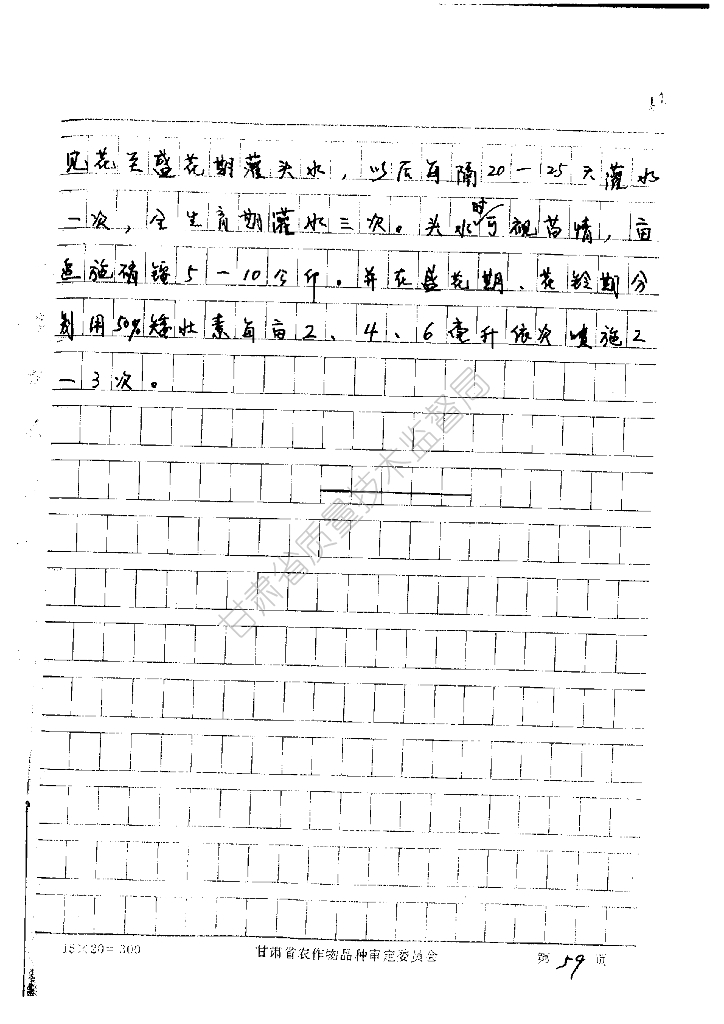 见花至盛花期灌头水，以后每隔20一25天灌水
一次，全生育期灌水三次。头水时可视苗情，亩
追施磷铵5一10公斤。并在盛花期、花铃期分
别用50%矮壮素每亩2、4、6毫升依次喷施2
一3次。
甘肃省质量技术监督局
15×20=300 甘肃省农作物品种审定委员会 第59页